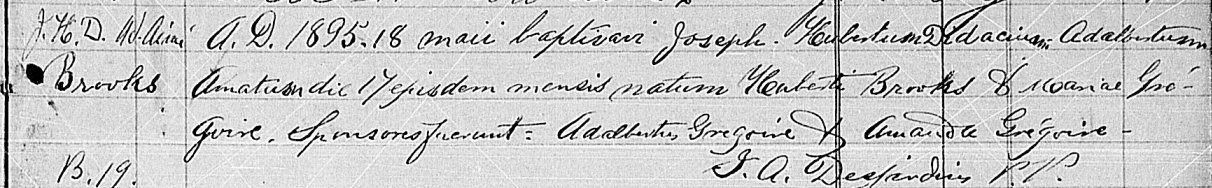 J. H. D. Ad. Aimé A. D. 1895. 18 maii baptizavi Joseph. Hubertum Didacium Adalbertum
Brooks Amatum die 17 ejusdem mensis natum Huberti Brooks & Mariae Gré-
goire. Sponsores fuerunt = Adalbertus Gregoire & Amanda Grégoire -
B. 19. J. A. Desjardins P. P.